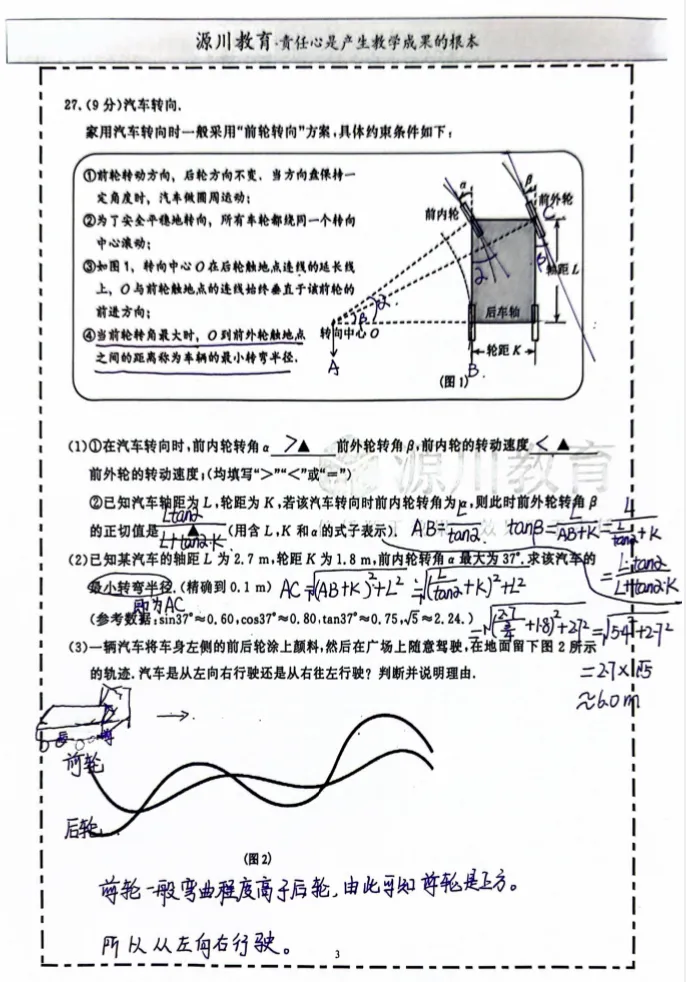 源川教育·责任心是产生教学成果的根本
27.(9分)汽车转向.
家用汽车转向时一般采用“前轮转向”方案,具体约束条件如下:
①前轮转动方向，后轮方向不变．当方向盘保持一
定角度时，汽车做圆周运动；
②为了安全平稳地转向，所有车轮都绕同一个转向
中心滚动；
③如图1，转向中心O在后轮触地点连线的延长线
上，O与前轮触地点的连线始终垂直于该前轮的
前进方向；
④当前轮转角最大时，O到前外轮触地点
之间的距离称为车辆的最小转弯半径．
α
β
前内轮
前外轮
C
α
β
轴距L
α
β
后车轴
转向中心O
轮距K
A
B
(图1)
(1)①在汽车转向时,前内轮转角α > ▲ 前外轮转角β,前内轮的转动速度 < ▲
前外轮的转动速度;(均填写“>”“<”或“=”)
源川教育
②已知汽车轴距为L,轮距为K,若该汽车转向时前内轮转角为α,则此时前外轮转角β
的正切值是 Ltanα/(L+tanα·K) ▲ (用含L,K和α的式子表示). AB=L/tanα tanβ=L/(AB+K)=L/(L/tanα+K)
=L·tanα/(L+tanα·K)
(2)已知某汽车的轴距L为2.7 m,轮距K为1.8 m,前内轮转角α最大为37°.求该汽车的
最小转弯半径.(精确到0.1 m) AC=√((AB+K)²+L²)=√((L/tanα+K)²+L²)
即为AC
(参考数据:sin37°≈0.60,cos37°≈0.80,tan37°≈0.75,√5≈2.24.) =√((2.7/¾+1.8)²+2.7²)=√(5.4²+2.7²)
=2.7×√5
≈6.0m
(3)一辆汽车将车身左侧的前后轮涂上颜料,然后在广场上随意驾驶,在地面留下图2所示
的轨迹.汽车是从左向右行驶还是从右往左行驶？判断并说明理由.
前轮
后轮
(图2)
前轮一般弯曲程度高于后轮,由此可知前轮是上方。
所以从左向右行驶。
3